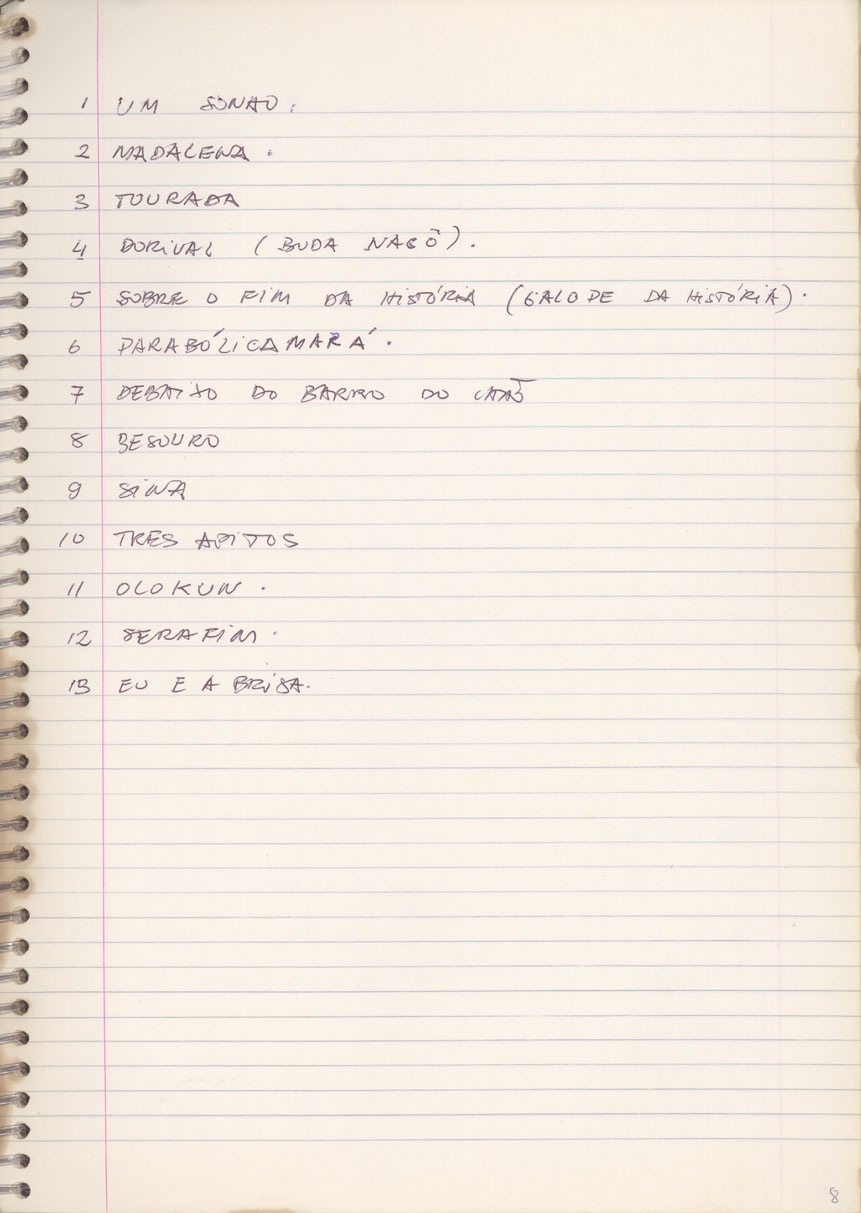 1 UM SONHO.
2 MADALENA.
3 TOURADA
4 DORIVAL (BUDA NAGÔ).
5 SOBRE O FIM DA HISTÓRIA (GALOPE DA HISTÓRIA).
6 PARABÓLICAMARÁ.
7 DEBAIXO DO BARRO DO CHÃO
8 BESOURO
9 SINA
10 TRES APITOS
11 OLOKUN.
12 SERAFIM.
13 EU E A BRISA.
8